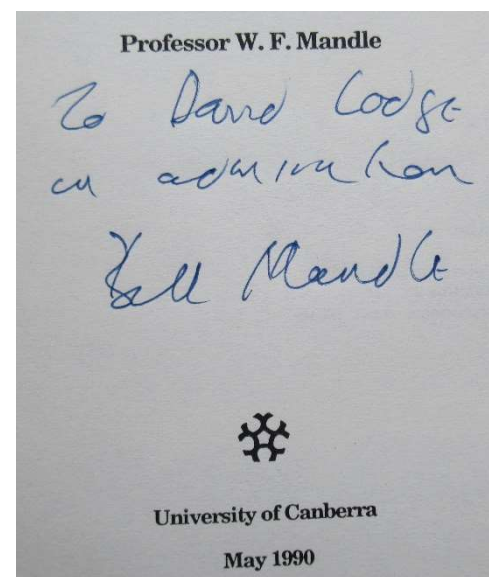 Professor W. F. Mandle
To David Lodge
in admiration
Bill Mandle
University of Canberra
May 1990